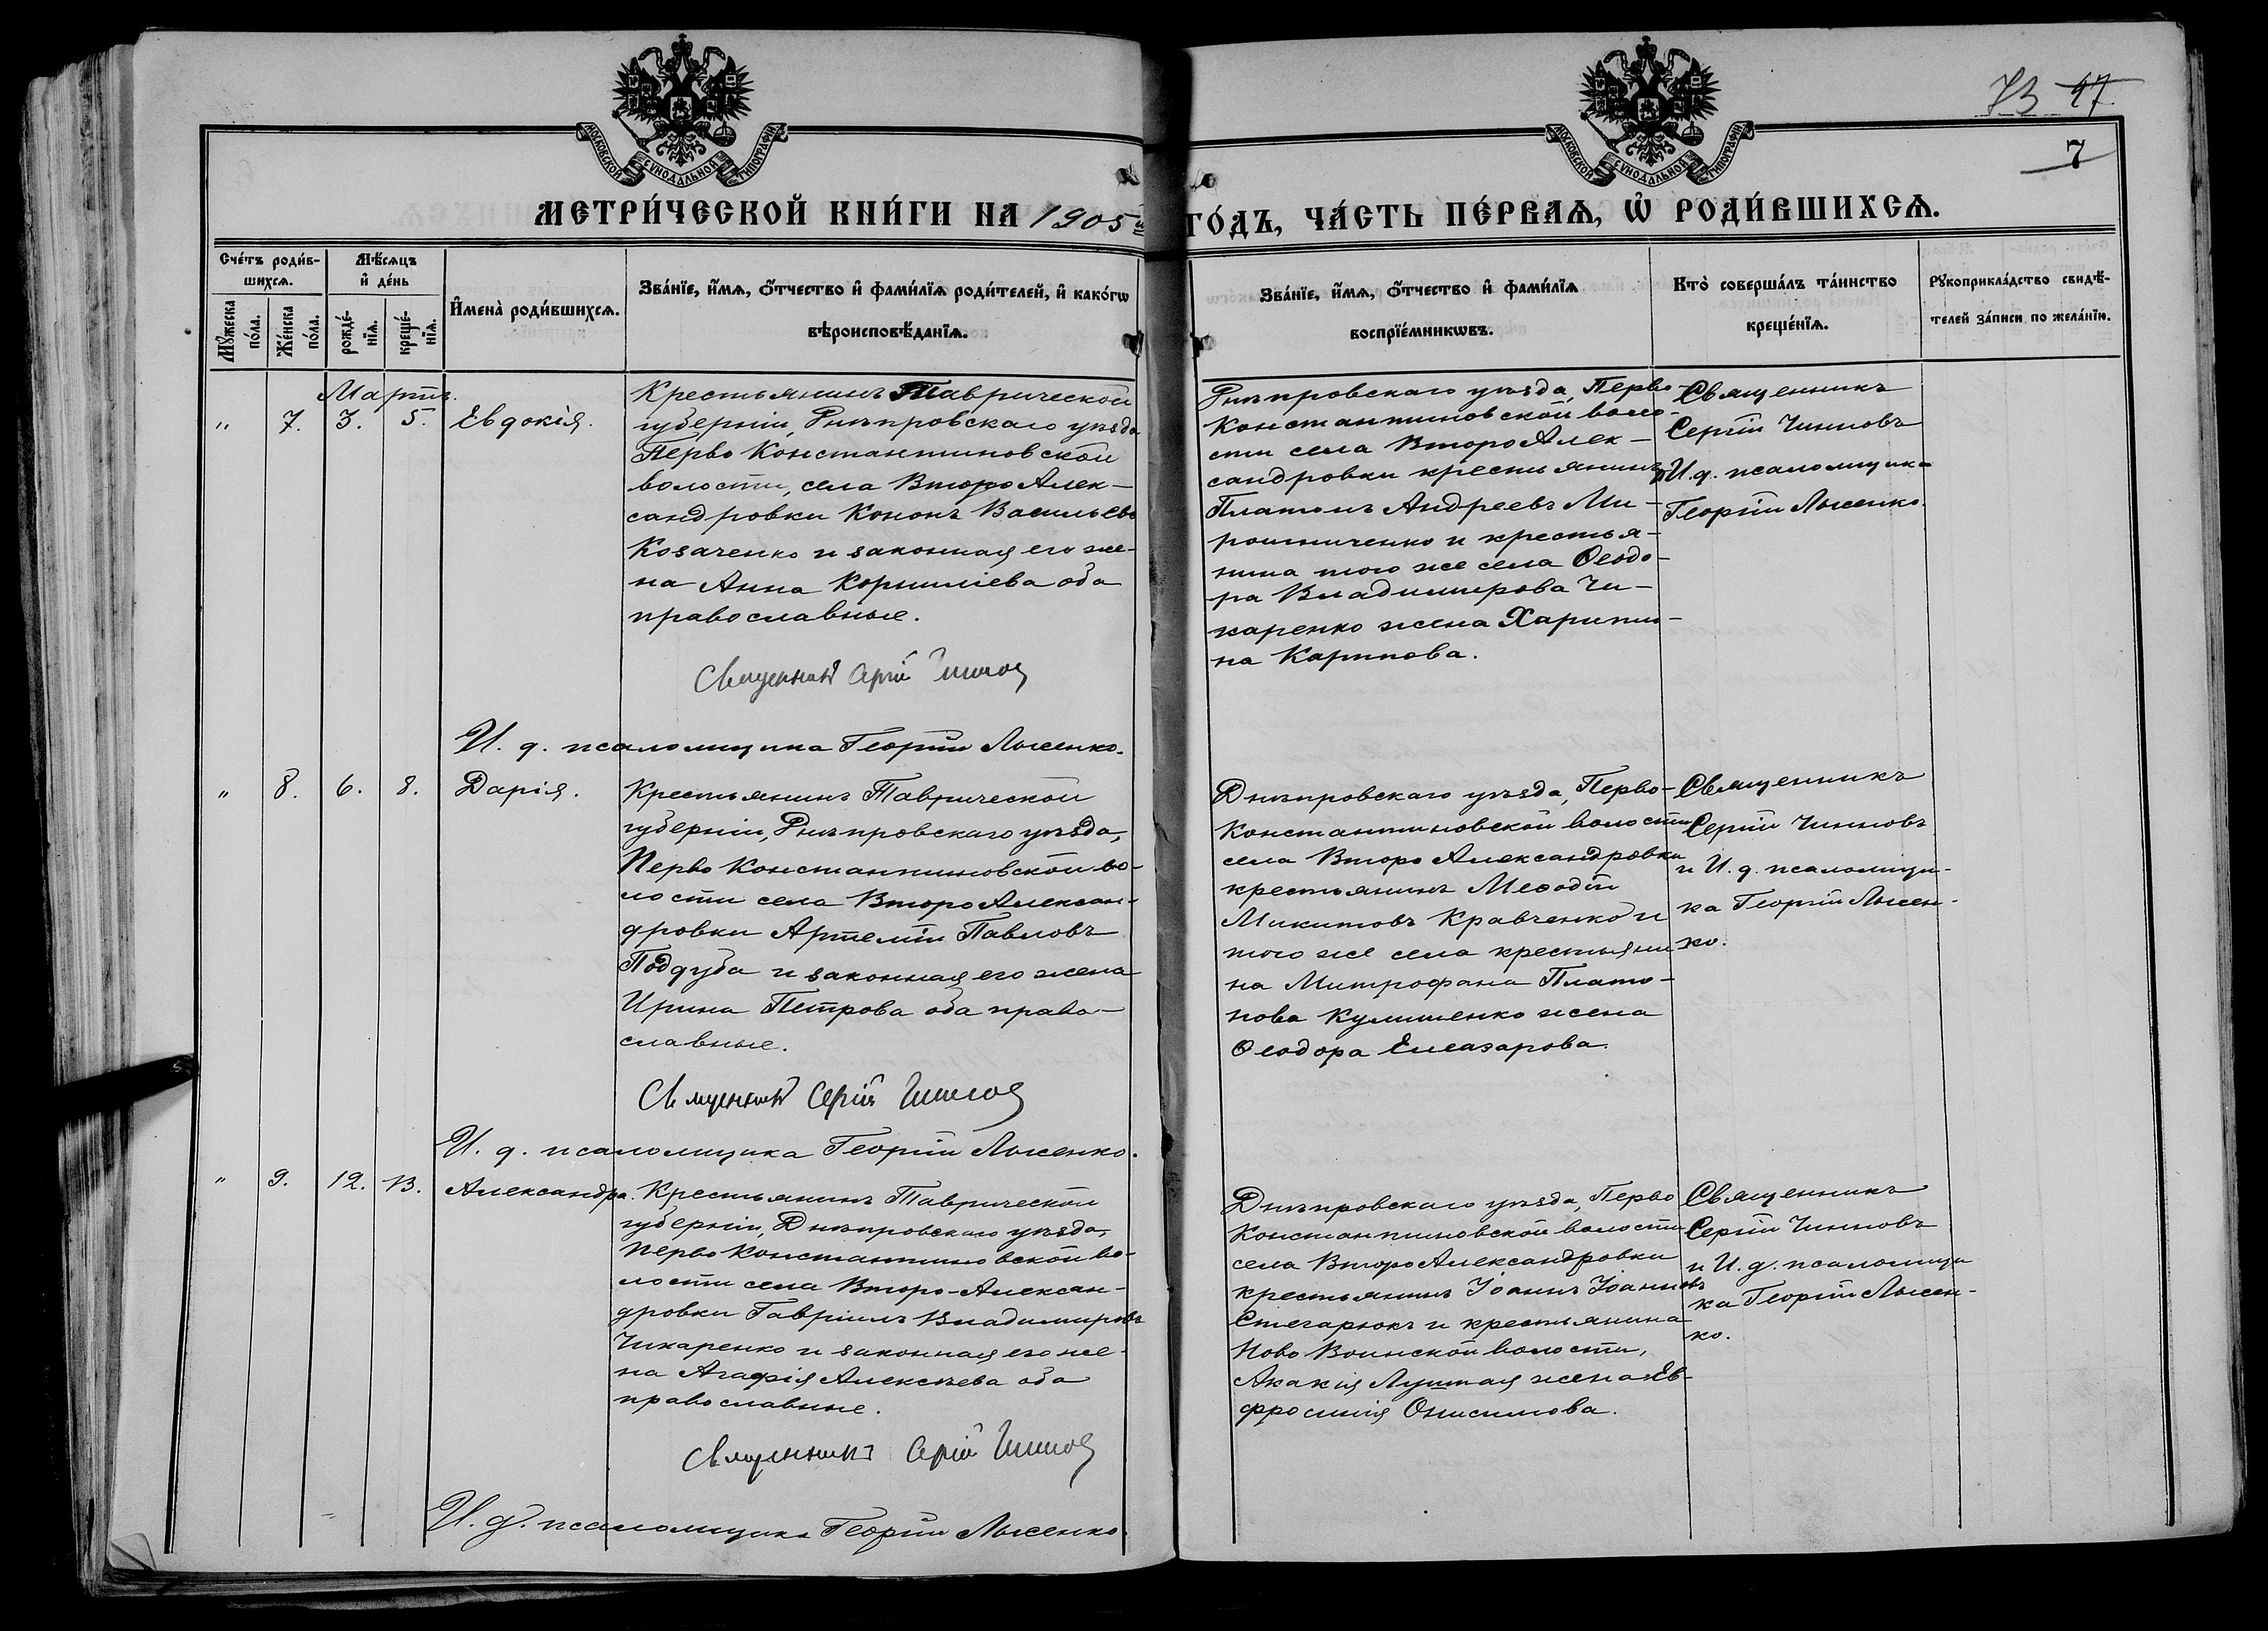 МОСКОВСКОЙ СѴНОДАЛЬНОЙ ТИПОГРАФІИ
МОСКОВСКОЙ СѴНОДАЛЬНОЙ ТИПОГРАФІИ
73 47
7
МЕТРИ́ЧЕСКОЙ КНИ́ГИ НА 1905 й ГО́ДЪ, ЧА́СТЬ ПЕ́РВАѦ, Ѡ РОДИ́ВШИХСѦ.
Сче́тъ роди́в-
шихсѧ.
Мꙋ́жеска по́ла.
Же́нска по́ла.
Мѣ́сѧцъ
и҆ де́нь
рожде́-
нїѧ.
креще́-
нїѧ.
И҆мена̀ роди́вшихсѧ.
Зва́нїе, и҆́мѧ, ѻ҆́тчество и҆ фами́лїѧ роди́телей, и҆ како́гѡ
вѣроисповѣ́данїѧ.
Зва́нїе, и҆́мѧ, ѻ҆́тчество и҆ фами́лїѧ
воспрїе́мникѡвъ.
Кто̀ соверша́лъ та́инство
креще́нїѧ.
Рꙋкоприкла́дство свидѣ́-
телей за́писи по жела́нїю.
Мартъ.
" 7. 3. 5. Евдокія.
Крестьянинъ Таврической
губерніи, Днѣпровскаго уѣзда
Перво Константиновской
волости, села Второ Алек-
сандровки Кононъ Васильевъ
Козаченко и законная его же-
на Анна Корниліева оба
православные.
Священникъ Сергій Чинновъ
И. д. псаломщика Георгій Лысенко.
Днѣпровскаго уѣзда, Перво-
Константиновской воло-
сти села Второ Алек-
сандровки крестьянинъ
Платонъ Андреевъ Ми-
рошниченко и крестья-
нина того же села Ѳеодо-
ра Владимирова Чи-
каренко жена Харити-
на Карпова.
Священникъ
Сергій Чинновъ
и И. д. псаломщика
Георгій Лысенко.
" 8. 6. 8. Дарія.
Крестьянинъ Таврической
губерніи, Днѣпровскаго уѣзда,
Перво Константиновской во-
лости села Второ Алексан-
дровки Артемій Павловъ
Поддуба и законная его жена
Ирина Петрова оба право-
славные.
Священникъ Сергій Чинновъ
И. д. псаломщика Георгій Лысенко.
Днѣпровскаго уѣзда, Перво-
Константиновской волости
села Второ Александровки
крестьянинъ Меѳодій
Микитовъ Кравченко и
того же села крестьяни
на Митрофана Плато-
нова Кулишенко жена
Ѳеодора Елеазарова.
Священникъ
Сергій Чинновъ
и И. д. псаломщи-
ка Георгій Лысен-
ко.
" 9. 12. 13. Александра.
Крестьянинъ Таврической
губерніи, Днѣпровскаго уѣзда,
Перво Константиновской во-
лости села Второ-Алексан-
дровки Гавріилъ Владимировъ
Чикаренко и законная его же-
на Агафія Алексѣева оба
православные.
Священникъ Сергій Чинновъ
И. д. псаломщика Георгій Лысенко.
Днѣпровскаго уѣзда, Перво
Константиновской волости
села Второ Александровки
крестьянинъ Іоаннъ Іоанновъ
Стегарюкъ и крестьянина
Ново Воинской волости,
Акакія Луштая жена Ев-
фросинія Онисимова.
Священникъ
Сергій Чинновъ
и И. д. псаломщи
ка Георгій Лысен-
ко.